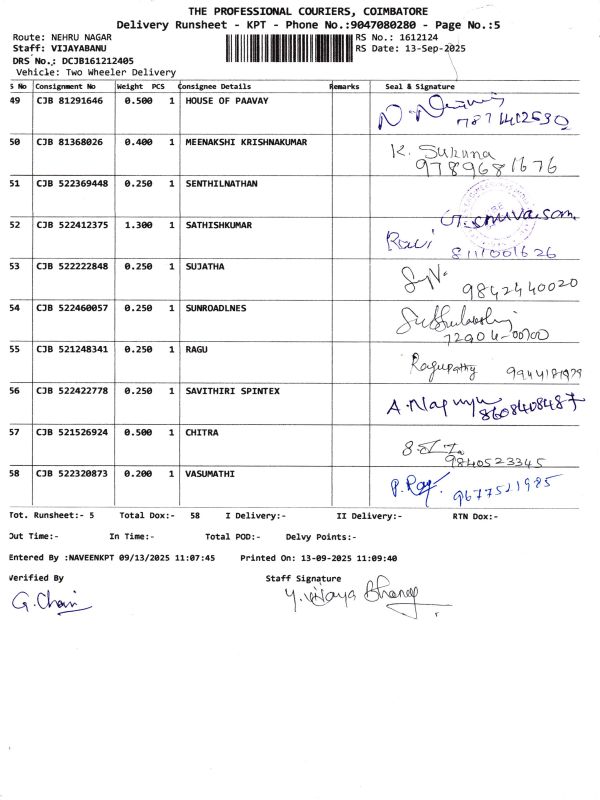 THE PROFESSIONAL COURIERS, COIMBATORE
Delivery Runsheet - KPT - Phone No.:9047080280 - Page No.:5
Route: NEHRU NAGAR RS No.: 1612124
Staff: VIJAYABANU RS Date: 13-Sep-2025
DRS No.,: DCJB161212405
Vehicle: Two Wheeler Delivery
S No Consignment No Weight PCS Consignee Details Remarks Seal & Signature
49 CJB 81291646 0.500 1 HOUSE OF PAAVAY
50 CJB 81368026 0.400 1 MEENAKSHI KRISHNAKUMAR K. Sukuna
9789681676
51 CJB 522369448 0.250 1 SENTHILNATHAN
52 CJB 522412375 1.300 1 SATHISHKUMAR Ravi
8111001626
53 CJB 522222848 0.250 1 SUJATHA
9842440020
54 CJB 522460057 0.250 1 SUNROADLNES
55 CJB 521248341 0.250 1 RAGU Ragupathy
56 CJB 522422778 0.250 1 SAVITHIRI SPINTEX
8608408487
57 CJB 521526924 0.500 1 CHITRA
9840523345
58 CJB 522320873 0.200 1 VASUMATHI P. Ray.
9677521985
Tot. Runsheet:- 5 Total Dox:- 58 I Delivery:- II Delivery:- RTN Dox:-
Out Time:- In Time:- Total POD:- Delvy Points:-
Entered By :NAVEENKPT 09/13/2025 11:07:45 Printed On: 13-09-2025 11:09:40
Verified By Staff Signature